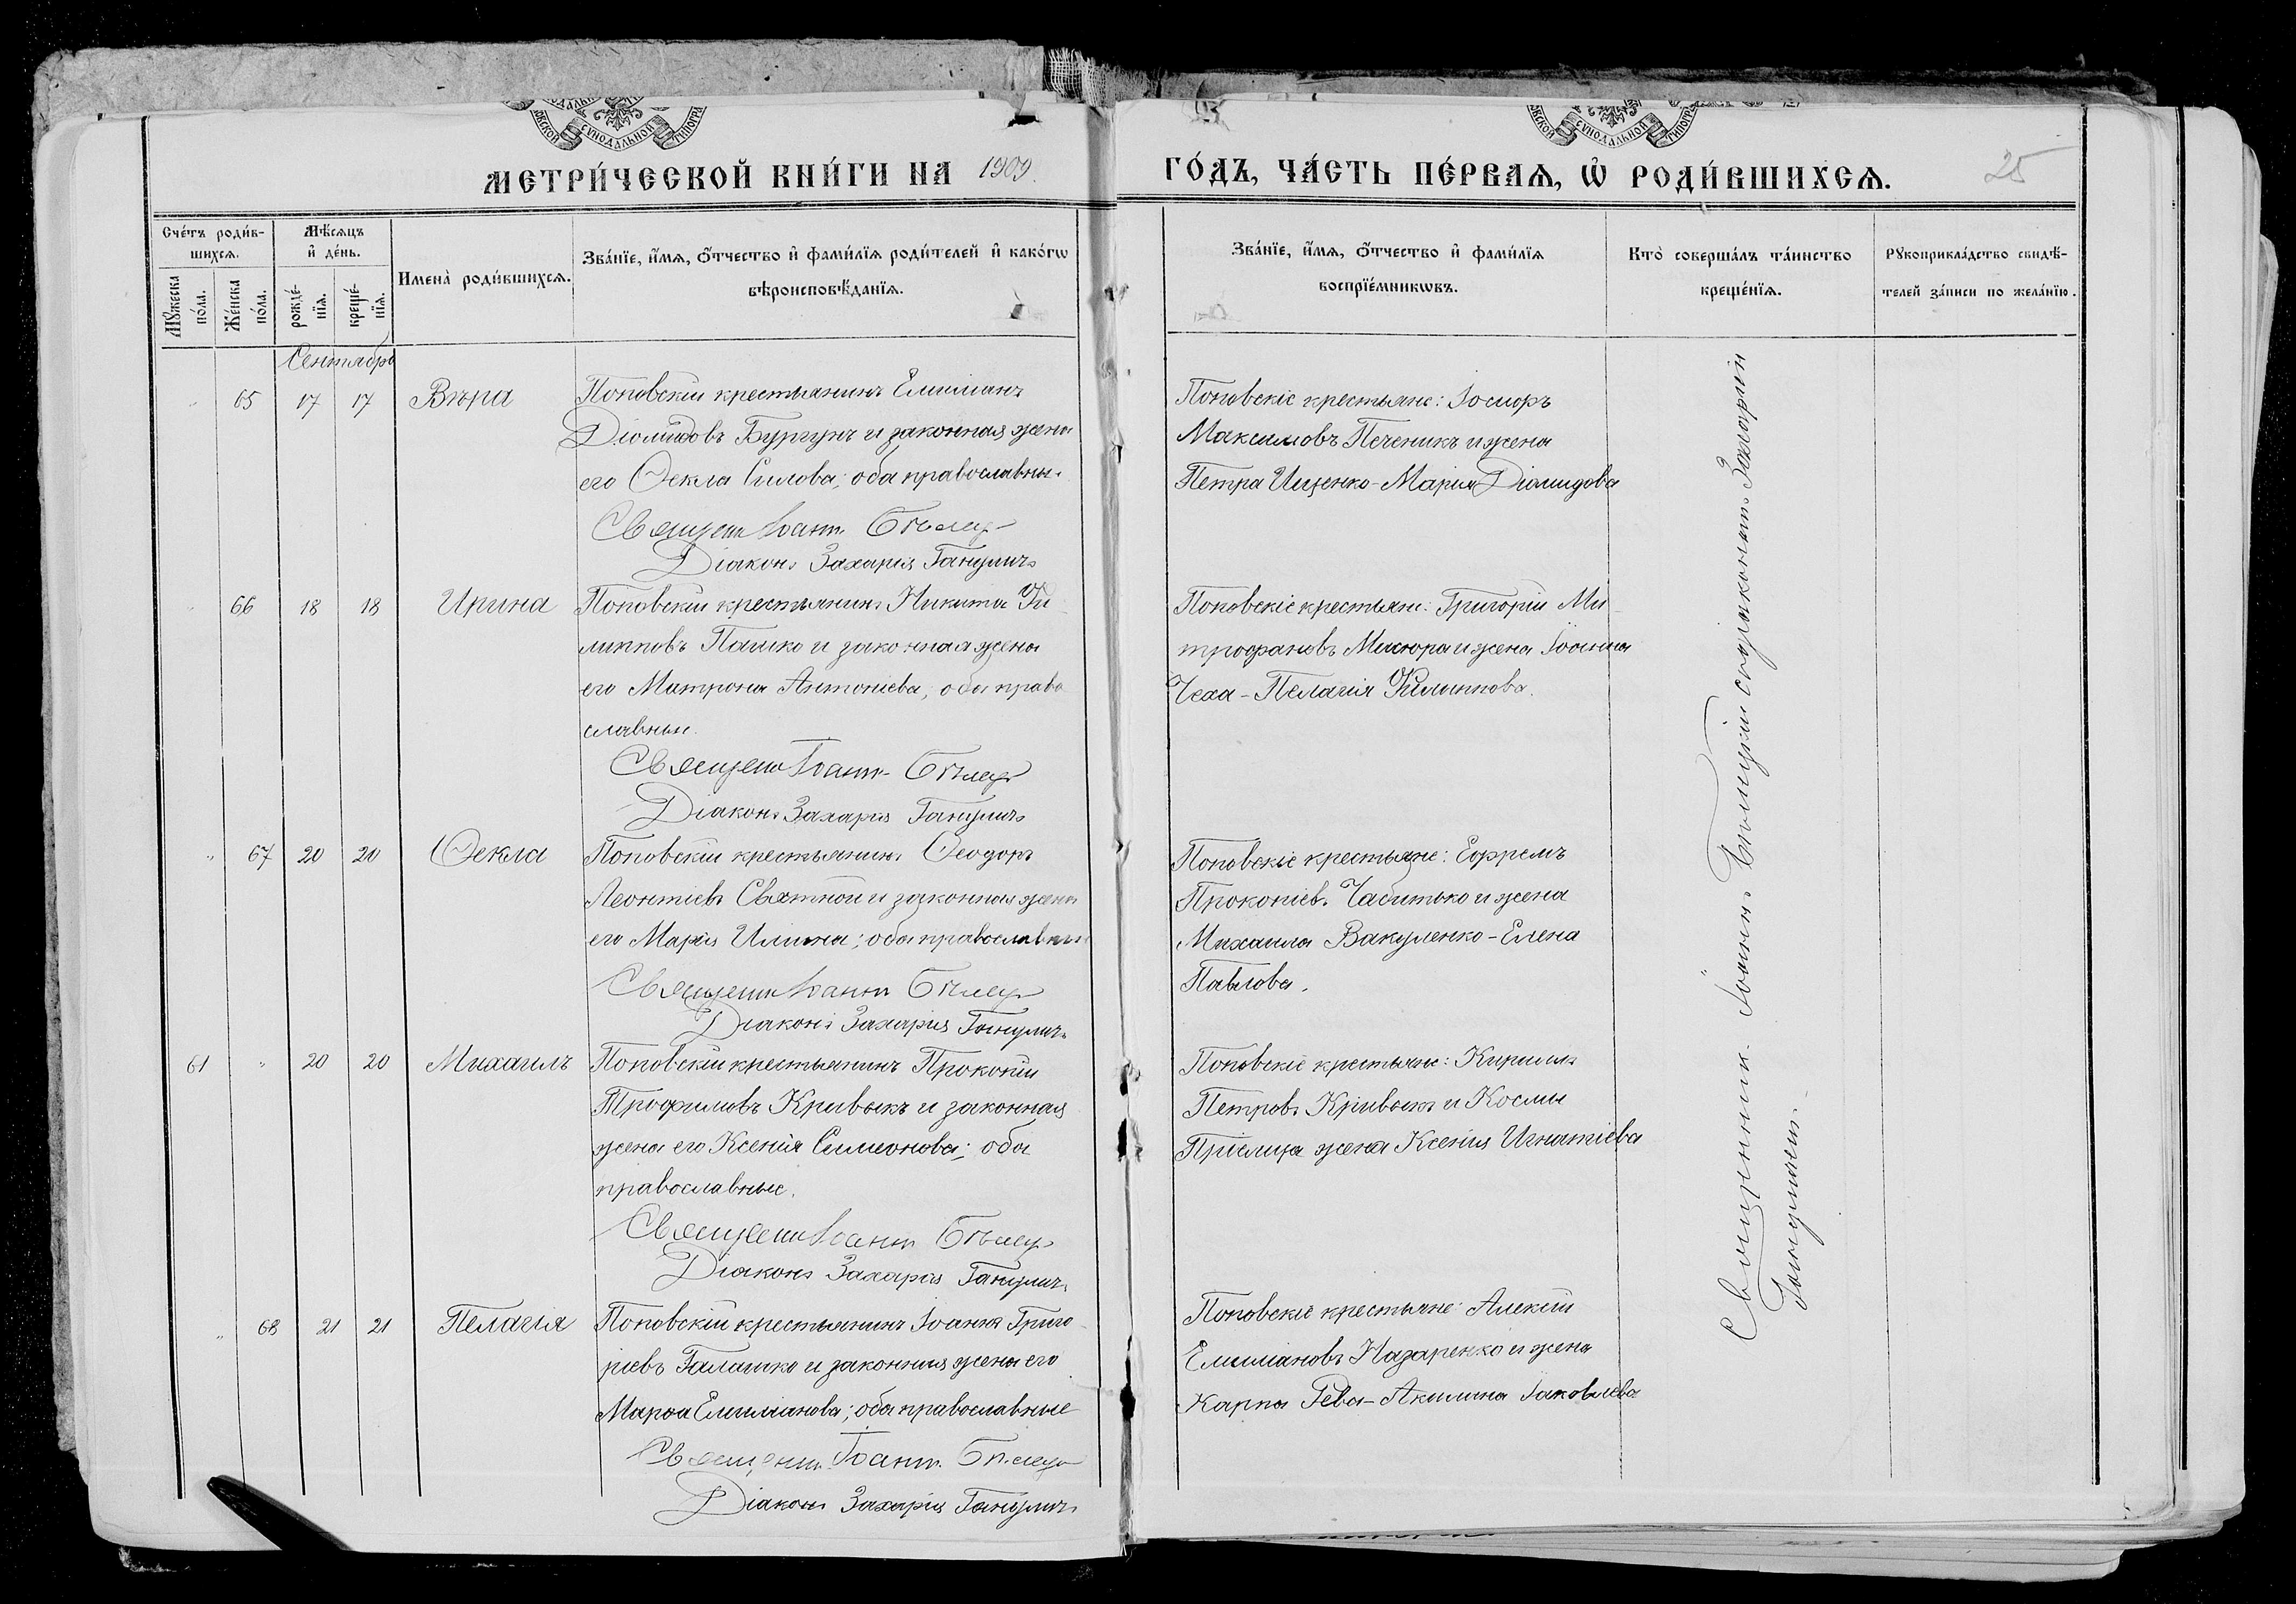 МЕТРИ́ЧЕСКОЙ КНИ́ГИ НА 1909
ГО́ДЪ, ЧА́СТЬ ПЕ́РВАѦ, Ѡ҆ РОДИ́ВШИХСѦ.
25
Сче́тъ роди́в-
шихсѧ.
Мѣ́сѧцъ
и҆ де́нь.
Имена̀ роди́вшихсѧ.
Зва́нїе, и҆́мѧ, ѻ҆́тчество и҆ фами́лїѧ роди́телей и҆ како́гѡ
вѣроисповѣ́данїѧ.
Мꙋ́жеска
по́ла.
Же́нска
по́ла.
рожде́-
нїѧ.
креще́-
нїѧ.
Зва́нїе, и҆́мѧ, ѻ҆́тчество и҆ фами́лїѧ
воспрїе́мникѡвъ.
Кто̀ соверша́лъ та́инство
креще́нїѧ.
Рꙋкоприкла́дство свидѣ́-
телей за́писи по жела́нїю.
Сентябрь
65 17 17 Вѣра
Поповскій крестьянинъ Емиліанъ
Діомидовъ Бургунъ и законная жена
его Ѳекла Силова; оба православны.
Священ Іоанн
Діаконъ Захарія Ганулич
Поповскіе крестьяне: Іосифъ
Максимовъ Печеникъ и жена
Петра Ищенко - Марія Діомидова
66 18 18 Ирина
Поповскій крестьянинъ Никита Фи
липповъ Пашко и законная жена
его Матрона Антоніева, оба право
славные.
Священ Іоанн
Діаконъ Захарія Ганулич
Поповскіе крестьяне: Григорій Ми
трофановъ Мисюра и жена Іоанна
Чеха - Пелагія Филиппова.
" 67 20 20 Ѳекла
Поповскій крестьянинъ Ѳеодоръ
Леонтіевъ Святной и законная жена
его Марія Илина; оба православны
Священ Іоанн
Діаконъ Захарія Ганулич
Поповскіе крестьяне: Ефремъ
Прокопіевъ Чабитько и жена
Михаила Вакуленко - Елена
Павлова.
61 " 20 20 Михаилъ
Поповскій крестьянинъ Прокопій
Трофимовъ Кривыкъ и законная
жена его Ксенія Симеонова; оба
православные.
Священ Іоанн
Діаконъ Захарія Ганулич
Поповскіе крестьяне: Кириллъ
Петровъ Кривыкъ и Космы
Пріслица жена Ксенія Игнатіева
" 68 21 21 Пелагія
Поповскій крестьянинъ Іоаннъ Григо
ріевъ Галашко и законная жена его
Марѳа Емиліанова; оба православные
Священ Іоанн
Діаконъ Захарія Ганулич
Поповскіе крестьяне: Алексій
Емиліановъ Назаренко и жена
Карпа Рева - Акилина Іаковлева
Священникъ Іоаннъ съ діакономъ Захаріей
Гануличемъ.